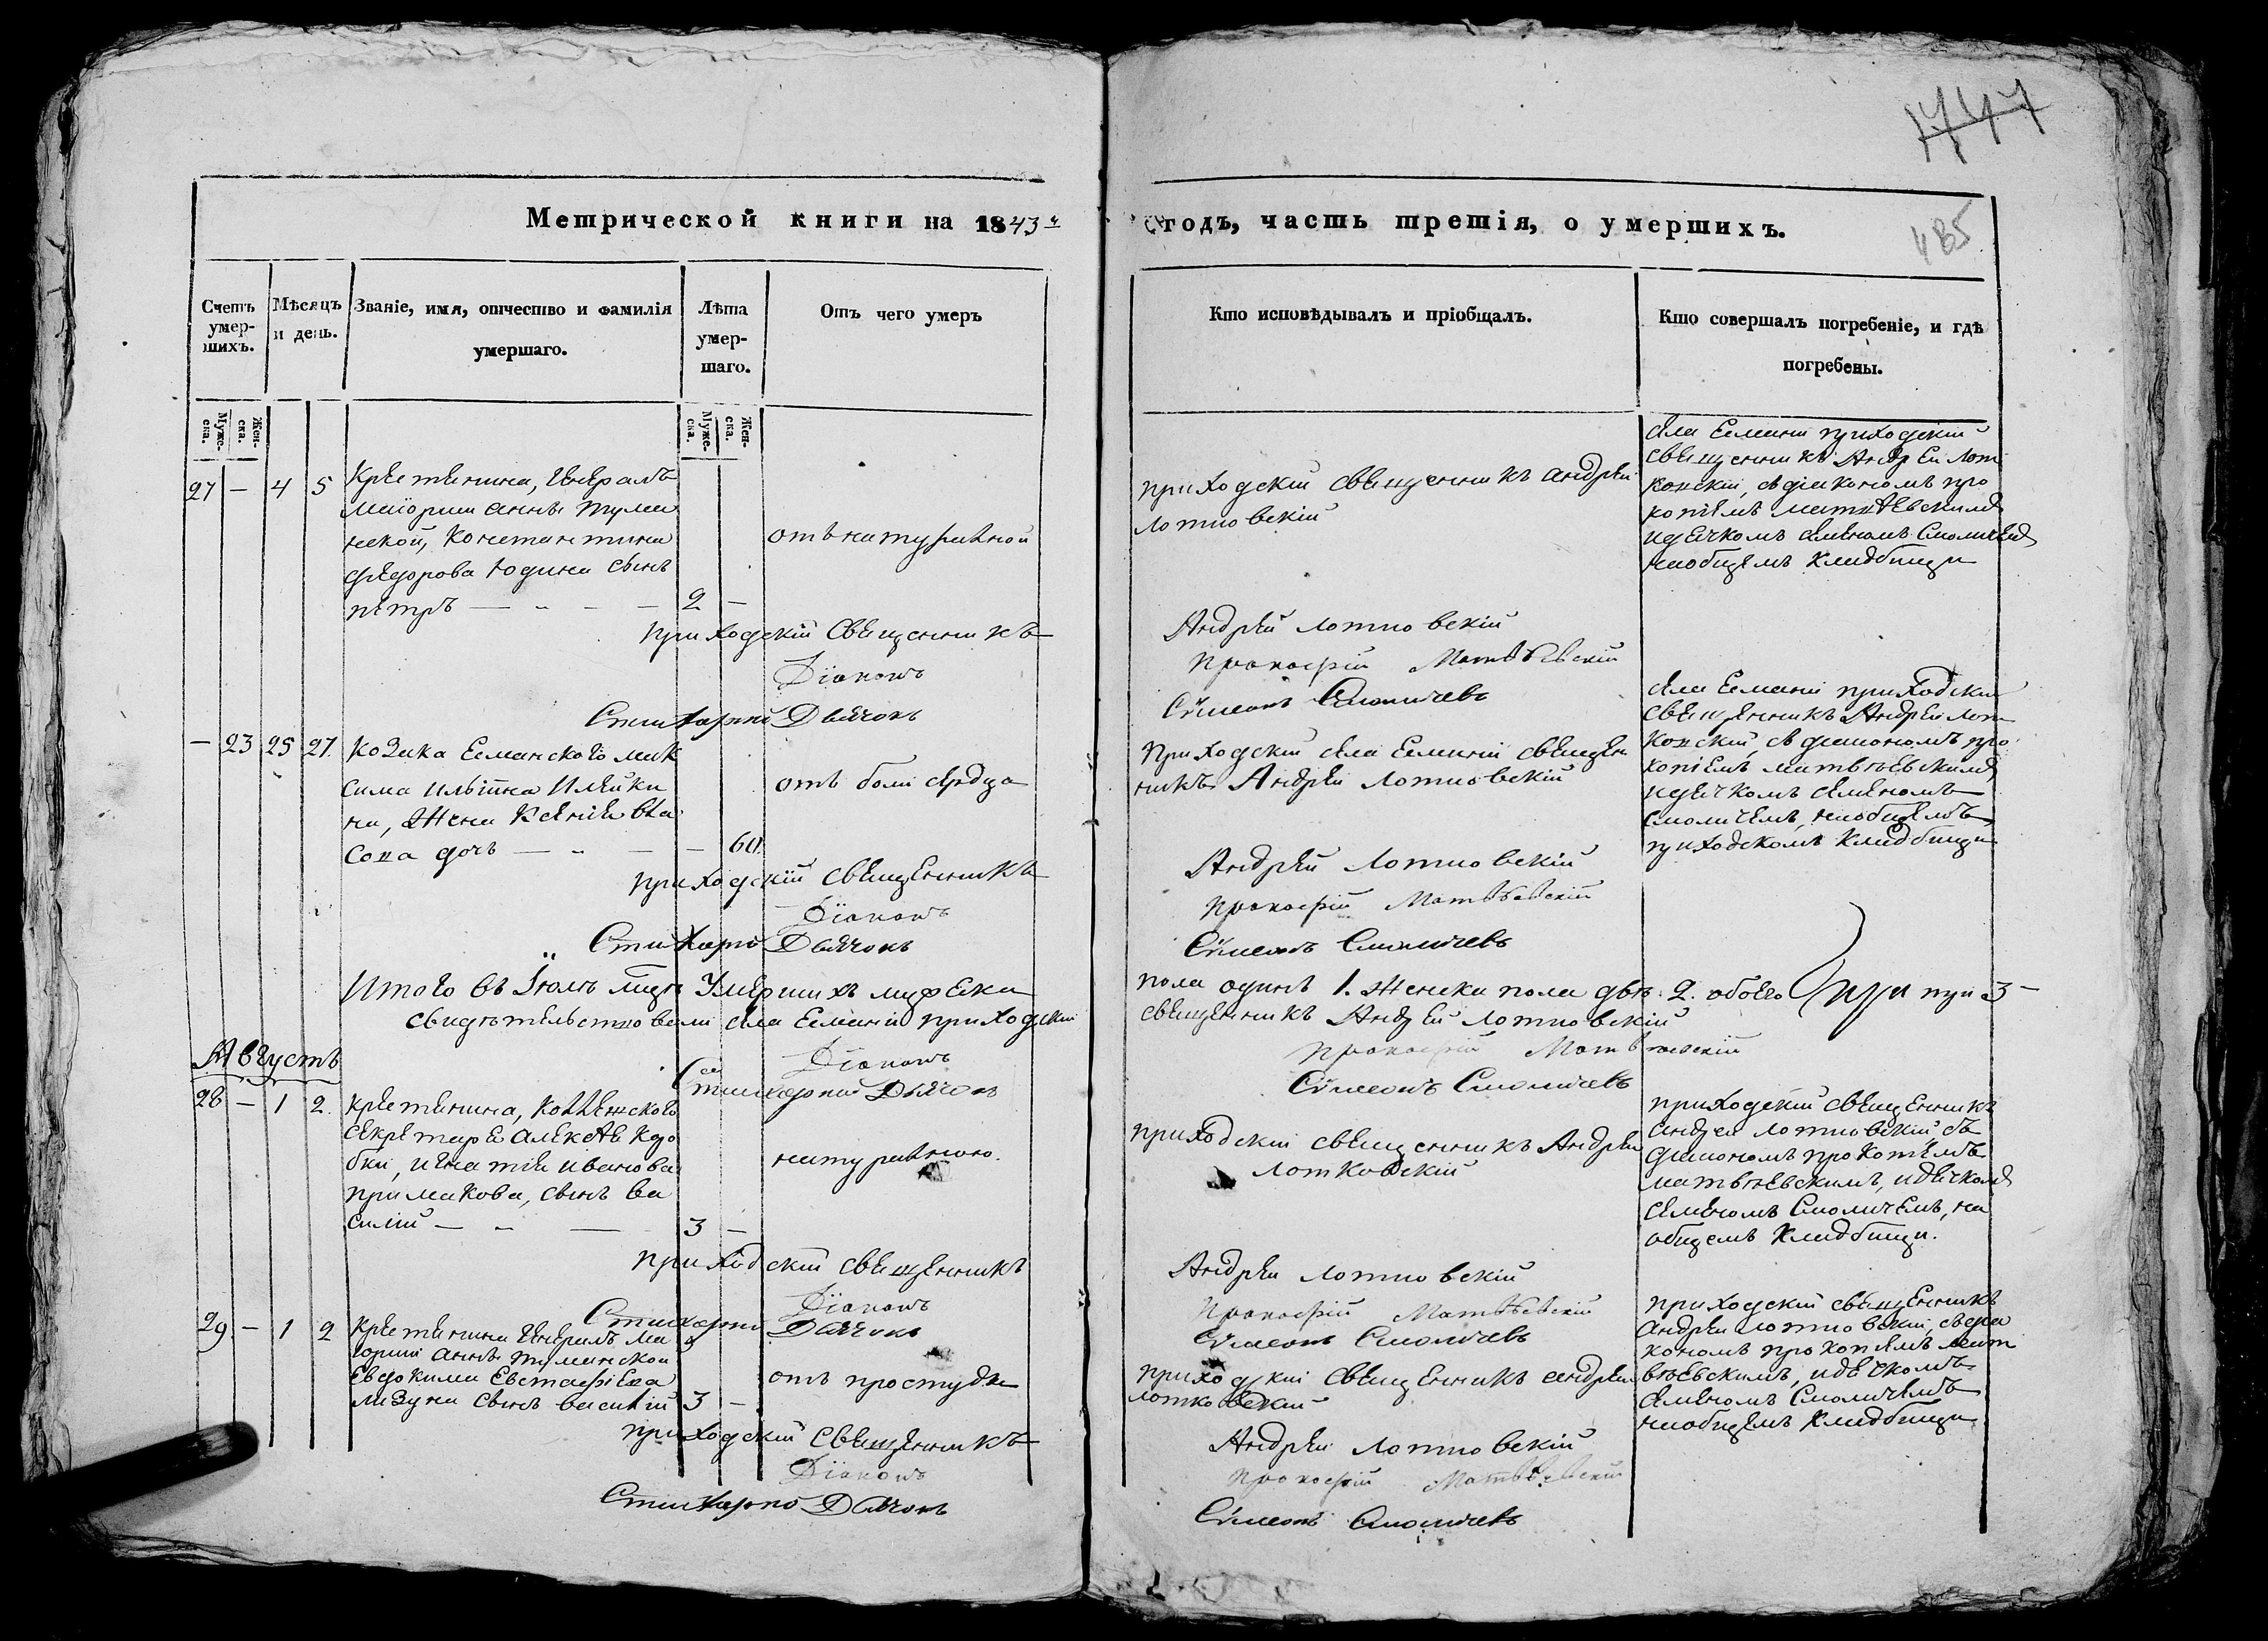 747
485
Метрической книги на 1843й годъ, часть третія, о умершихъ.
Счетъ умер-шихъ.
Мѣсяцъ и день.
Званіе, имя, отчество и фамилія
умершаго.
Лѣта
умер-
шаго.
Отъ чего умеръ
Кто исповѣдывалъ и пріобщалъ.
Кто совершалъ погребеніе, и гдѣ
погребены.
Муже-ска.
Жен-ска.
Муже-ска.
Жен-ска.
27 — 4 5
Крестянина, Генералъ
Маіорши Анны Тума
нской, Константина
Федорова Юдина сынъ
Петръ — „ — — 2 —
отъ натуральной
Приходскій Священникъ Андрей
Лотковскій
Села Есмани приходскій
Священникъ Андрей Лот
ковскій, съ діакономъ про
копіемъ Матвѣевскимъ
и дячкомъ Семеномъ Смоличемъ
на общемъ кладбищи
Приходскій Священникъ Андрей Лотковскій
Діаконъ Прокофій Матвѣевскій
Стихарный Дьячокъ Сѵмеонъ Смоличевъ
— 23 25 27.
Козака Есманского Мак
сима
на, Жена Ксенія Вла
сова дочь — „ — — 60.
отъ боли сердца
Приходскій села Есмани священ
никъ Андрей Лотковскій
Села Есмани приходскій
священникъ Андрей Лот
ковскій, съ діакономъ про
копіемъ Матвѣевскимъ,
и дячкомъ Семеномъ
Смоличемъ, на общемъ
приходскомъ кладбищи
Приходскій Священникъ Андрей Лотковскій
Діаконъ Прокофій Матвѣевскій
Стихарной Дьячокъ Сѵмеонъ Смоличевъ
Итого въ Іюлѣ м͠цѣ Умершихъ мужеска пола одинъ 1. Женска пола двѣ 2. обоего три 3 —
свидѣтельствовали села Есмани приходскій священникъ Андрей Лотковскій
Діаконъ Прокофій Матвѣевскій
Стихарный Дьячокъ Сѵмеонъ Смоличевъ
Августъ
28 — 1 2.
Крестянина, Коллежского
секретаря Алексѣя Кдо
бки, Игнатія Иванова
Примакова, сынъ Ва
силій — „ — 3 —
натуральною.
Приходскій священникъ Андрей
Лотковскій
Приходскій священникъ
Андрей Лотковскій, съ
діакономъ Прокопіемъ
Матвѣевскимъ, и дячкомъ
Семеномъ Смоличемъ, на
общемъ кладбищи.
Приходскій священникъ Андрей Лотковскій
Діаконъ Прокофій Матвѣевскій
Стихарной Дьячокъ Сѵмеонъ Смоличевъ
29 — 1 2
Крестянина Генералъ Ма
іорши Анны Туманской
Евдокима Евстафіева
Лизуна сынъ Василій 3 —
отъ простуды
Приходскій священникъ Андрей
Лотковскій
Приходскій священникъ
Андрей Лотковскій, съ діа
кономъ Прокопіемъ Мат
вѣевскимъ, и дячкомъ
Семеномъ Смоличемъ
на общемъ кладбищи
Приходскій Священникъ Андрей Лотковскій
Діаконъ Прокофій Матвѣевскій
Стихарной Дьячокъ Сѵмеонъ Смоличевъ